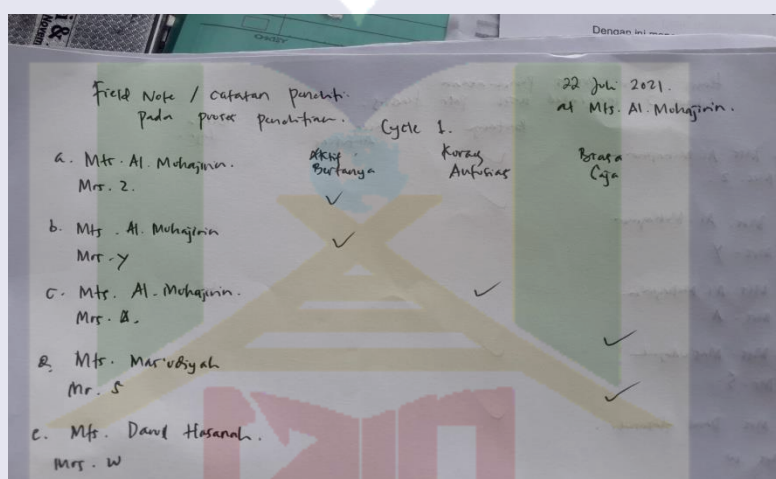 Dengan ini
Field Note / catatan peneliti.
pada proses penelitian.
Cycle 1.
22 Juli 2021.
at Mts. Al. Muhajirin.
Aktif Bertanya
Kurang Antusias
Biasa Saja
a. Mts. Al. Muhajirin.
Mrs. Z.
✓
b. Mts. Al. Muhajirin
Mrs. Y
✓
c. Mts. Al. Muhajirin.
Mrs.
✓
Mts. Mas'udiyah
Mr. S
✓
✓
e. Mts. Darul Hasanah.
Mrs. W